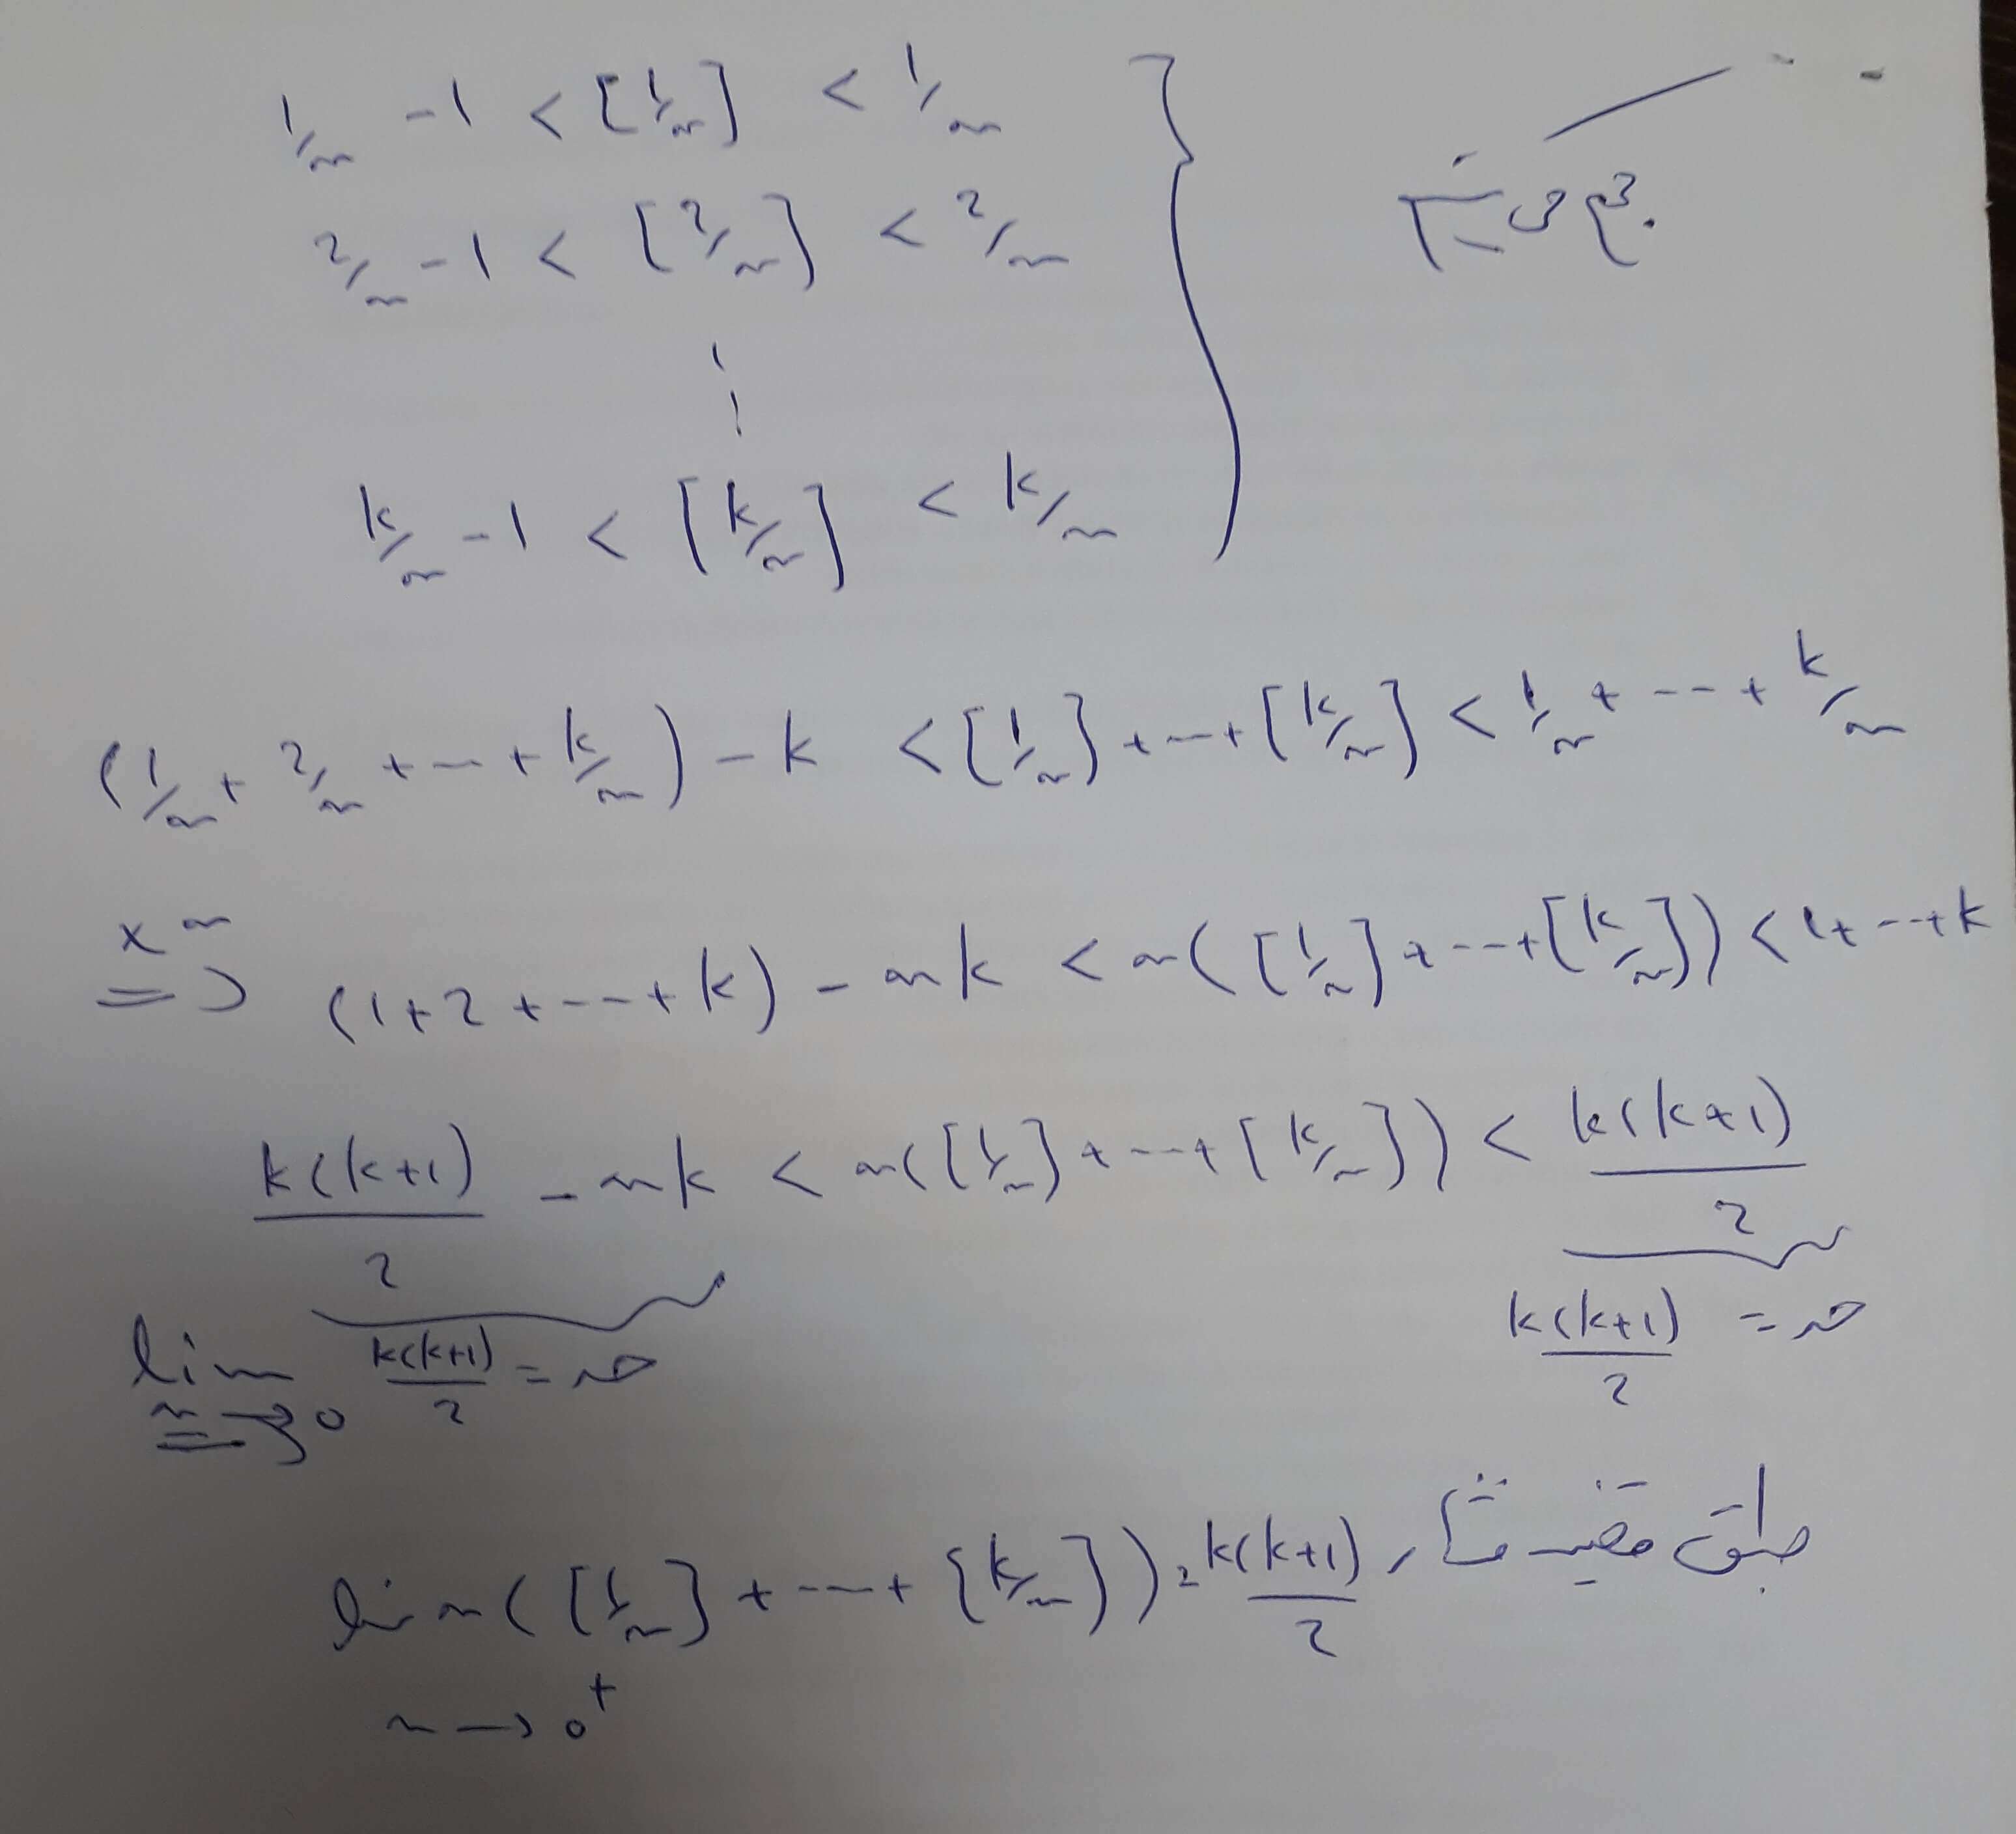 1/x - 1 < [1/x] < 1/x
2/x - 1 < [2/x] < 2/x
⋮
k/x - 1 < [k/x] < k/x
(1/x + 2/x + --- + k/x) - k < [1/x] + --- + [k/x] < 1/x + --- + k/x
×x => (1+2+---+k) - xk < x([1/x] + --- + [k/x]) < 1+---+k
k(k+1)/2 - xk < x([1/x] + --- + [k/x]) < k(k+1)/2
lim x→0 k(k+1)/2 = k(k+1)/2 =
طبق قضیه فشار
lim x([1/x] + --- + [k/x]) = k(k+1)/2
x → 0⁺